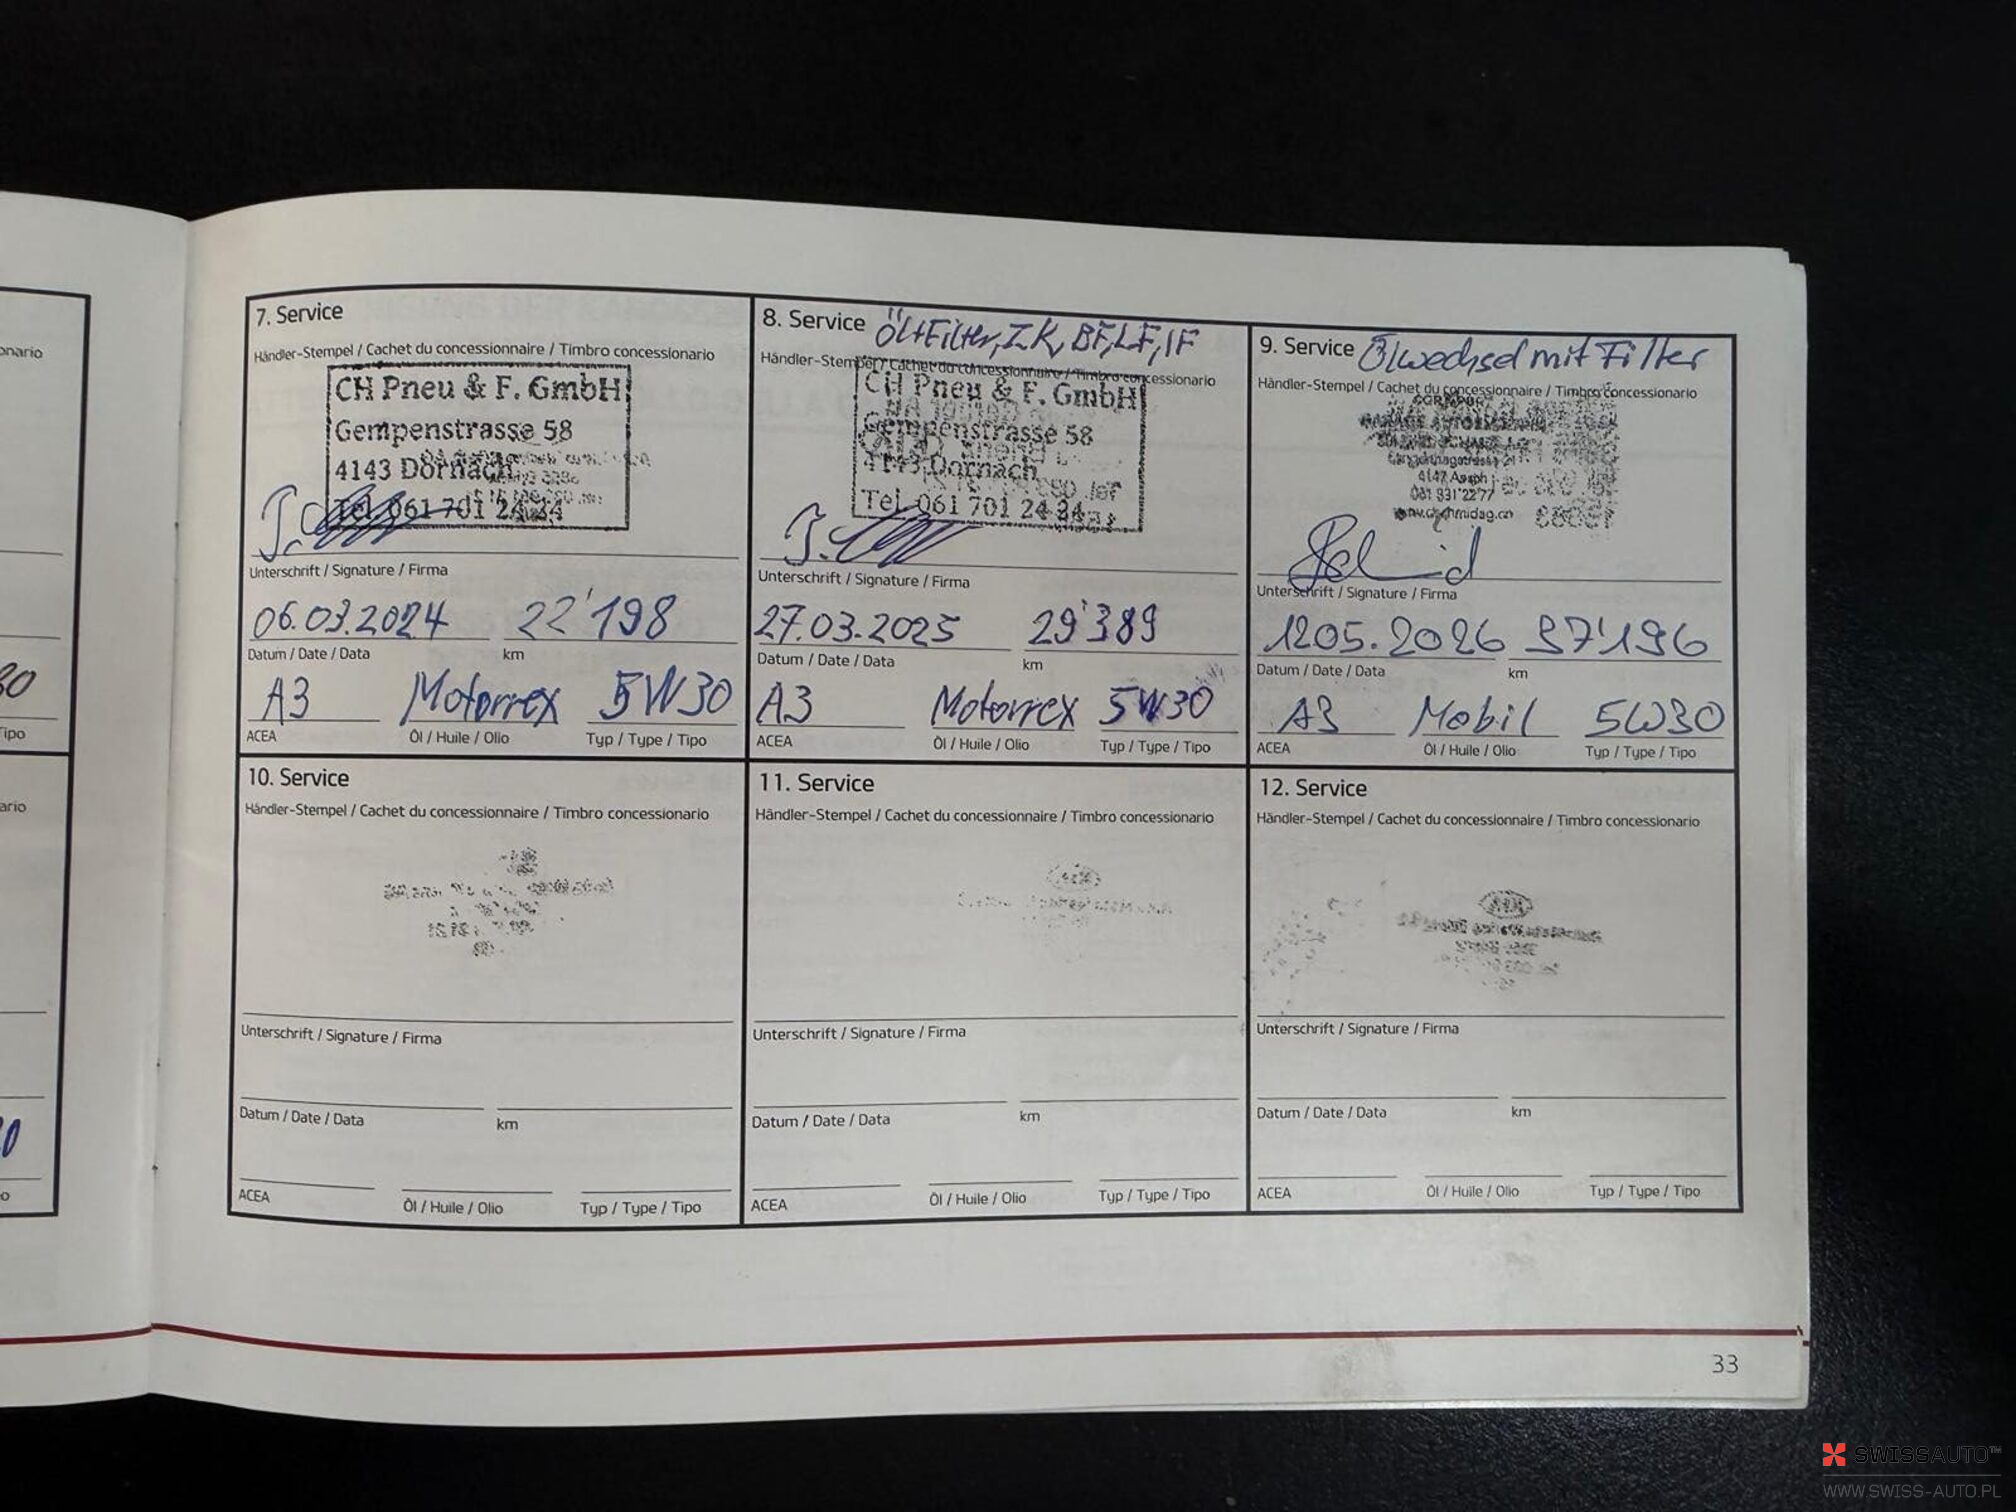 onario
30
Tipo
ario
0
o
7. Service
Händler-Stempel / Cachet du concessionnaire / Timbro concessionario
CH Pneu & F. GmbH
Gempenstrasse 58
4143 Dornach
Tel. 061 701 24 24
Unterschrift / Signature / Firma
06.03.2024 22'198
Datum / Date / Data km
A3 Motorrex 5W30
ACEA Öl / Huile / Olio Typ / Type / Tipo
8. Service Öl+Filter, ZK, BF, LF, IF
Händler-Stempel / Cachet du concessionnaire / Timbro concessionario
CH Pneu & F. GmbH
Gempenstrasse 58
4143 Dornach
Tel. 061 701 24 24
Unterschrift / Signature / Firma
27.03.2025 29'389
Datum / Date / Data km
A3 Motorrex 5W30
ACEA Öl / Huile / Olio Typ / Type / Tipo
9. Service Ölwechsel mit Filter
Händler-Stempel / Cachet du concessionnaire / Timbro concessionario
4147 Aesch
061 931 22 77
Unterschrift / Signature / Firma
12 05. 2026 37'196
Datum / Date / Data km
A3 Mobil 5W30
ACEA Öl / Huile / Olio Typ / Type / Tipo
10. Service
Händler-Stempel / Cachet du concessionnaire / Timbro concessionario
Unterschrift / Signature / Firma
Datum / Date / Data km
ACEA Öl / Huile / Olio Typ / Type / Tipo
11. Service
Händler-Stempel / Cachet du concessionnaire / Timbro concessionario
Unterschrift / Signature / Firma
Datum / Date / Data km
ACEA Öl / Huile / Olio Typ / Type / Tipo
12. Service
Händler-Stempel / Cachet du concessionnaire / Timbro concessionario
Unterschrift / Signature / Firma
Datum / Date / Data km
ACEA Öl / Huile / Olio Typ / Type / Tipo
33
SWISSAUTO™
WWW.SWISS-AUTO.PL